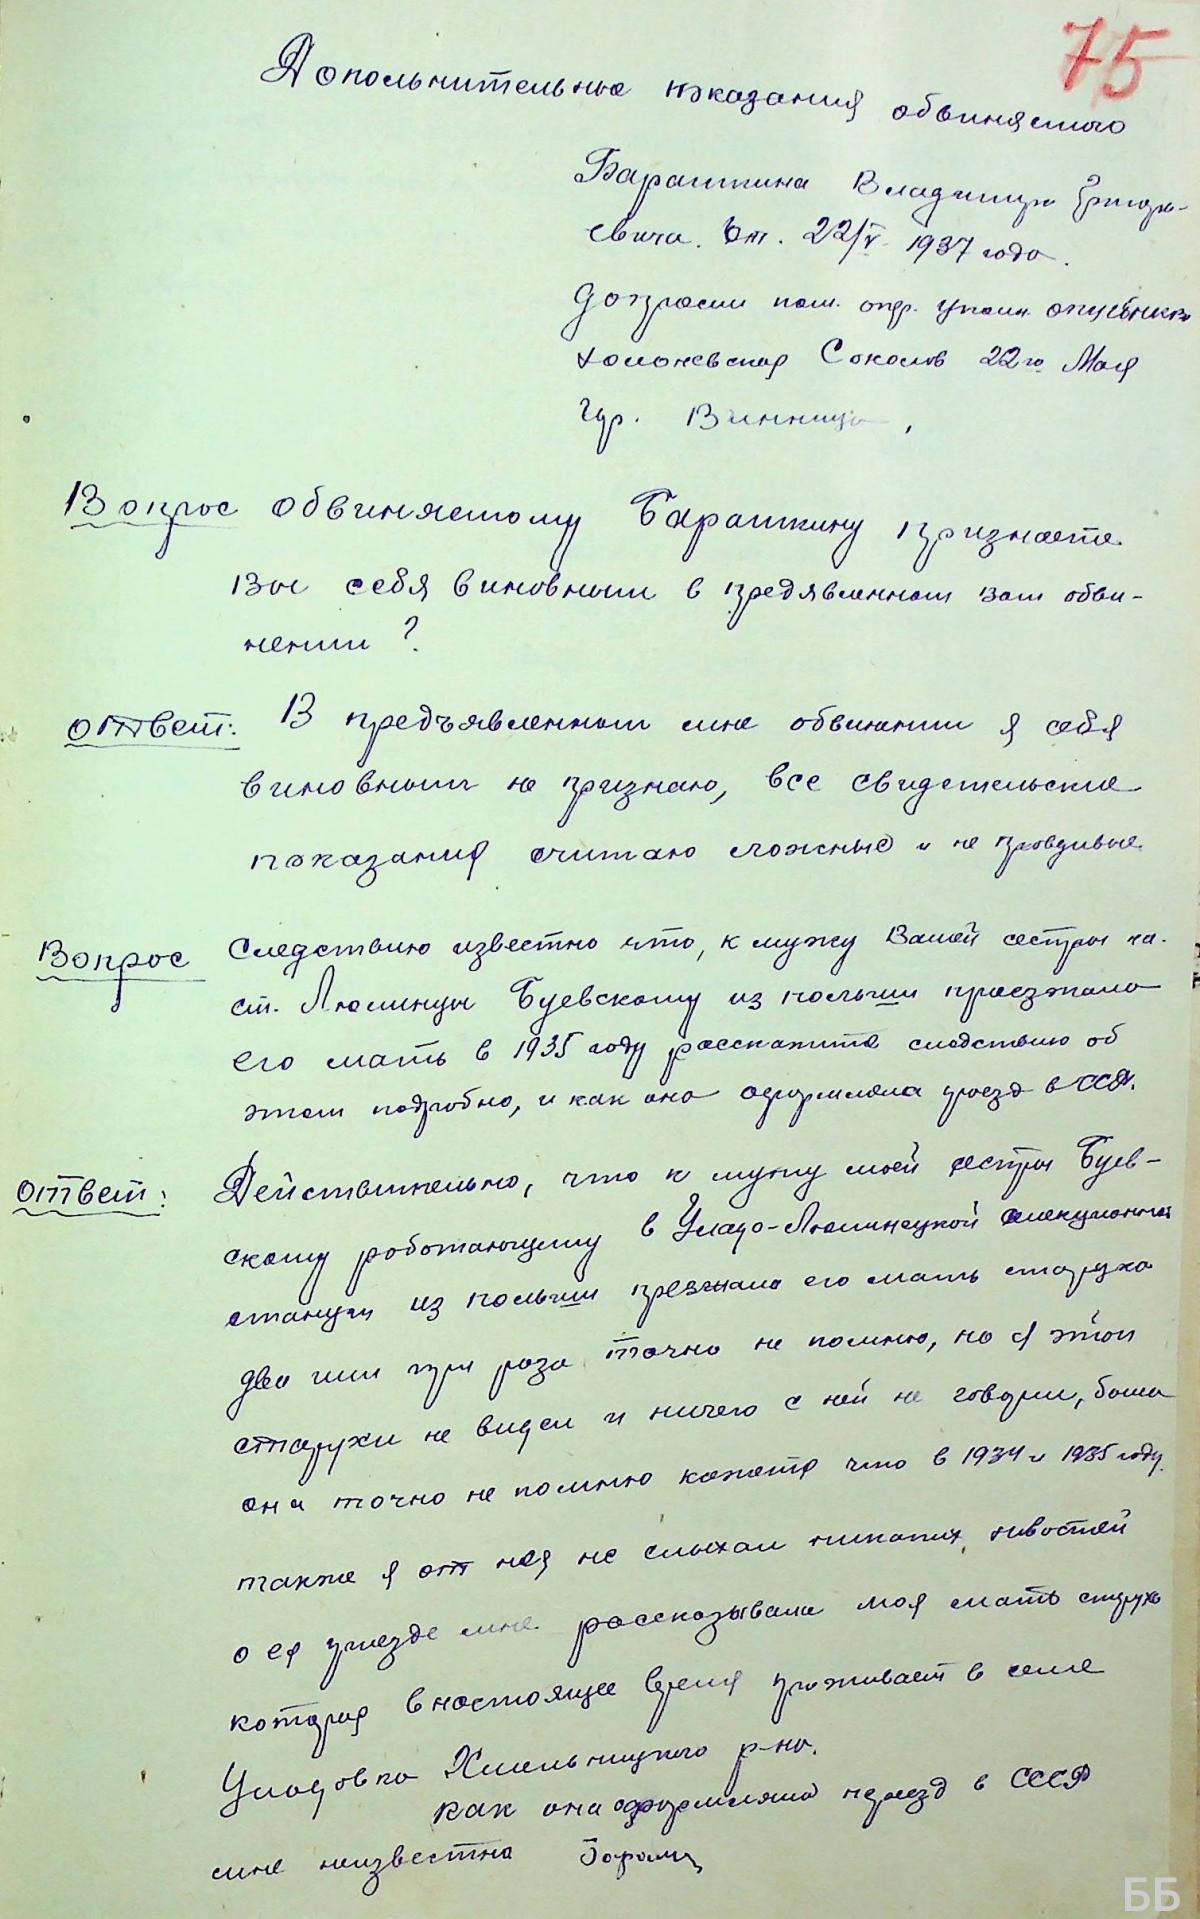 75
Дополнительное показания обвиняемого
Бараткина Владимира Григорь-
евича. От. 22/V 1937 года.
Допросил пом. опр. уполн.
Соколов 22го Мая
гор. Винница,
Вопрос обвиняемому Бараткину признаете
Вы себя виновным в предявленном вам обви-
нении?
ответ: В предъявленном мне обвинении я себя
виновным не признаю, все свидетельские
показания считаю ложные и не правдивые
Вопрос Следствию известно что, к мужу Вашей сестры на
ст. Люлинцы Буевскому из польши приезжала
его мать в 1935 году расскажите следствию об
этом подробно, и как она оформляла приезд в СССР.
ответ: Действительно, что к мужу моей сестры Буев-
скому роботающему в Уладо-Люлинецкой селекционной
станции из польши презжала его мать старуха
два или три раза точно не помню, но я этой
старухи не видел и ничего с ней не говорил, была
она точно не помню кажется что в 1934 и 1935 году.
также я от нея не слыхал никаких новостей
о ея приезде мне рассказывала моя мать старуха
которая в настоящее время проживает в селе
Уладовка Хмельницкого р-на.
Как она оформляла переезд в СССР
мне неизвестна
ББ